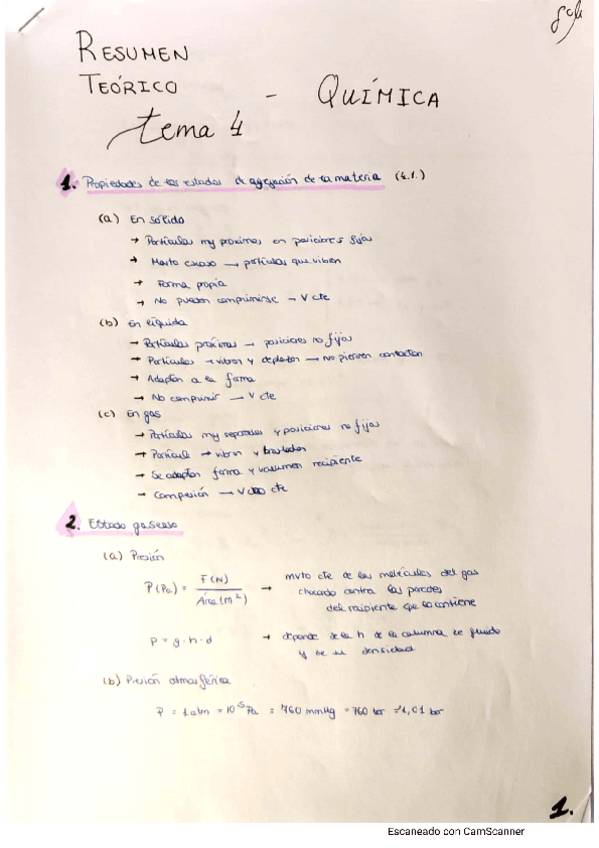 RESUMEN
TEÓRICO - QUÍMICA
tema 4
1. Propiedades de los estados de agregación de la materia (4.1.)
(a) En sólido
→ Partículas muy proximas en posiciones fijas
→ Mvto escaso → partículas que vibran
→ Forma propia
→ No pueden comprimirse → V cte
(b) En líquido
→ Partículas próximas → posiciones no fijas
→ Partículas → vibran y → No pierden contacto
→ Adaptan a la forma
→ No comprimir → V cte
(c) En gas
→ Partículas muy separadas y posiciones no fijas
→ Partícul → vibran y trasladan
→ Se adaptan forma y volumen recipiente
→ Compresión → V cte
2. Estado gaseoso
(a) Presión
P(Pa) = F(N) / Área(m²) → mvto cte de las moléculas del gas
chocando contra las paredes
del recipiente que lo contiene
P = g·h·d → depende de la h de la columna de fluido
y de su densidad
(b) Presión atmosférica
P = 1 atm = 10⁵ Pa = 760 mmHg = 760 tor = 1,01 bar
1.
Escaneado con CamScanner